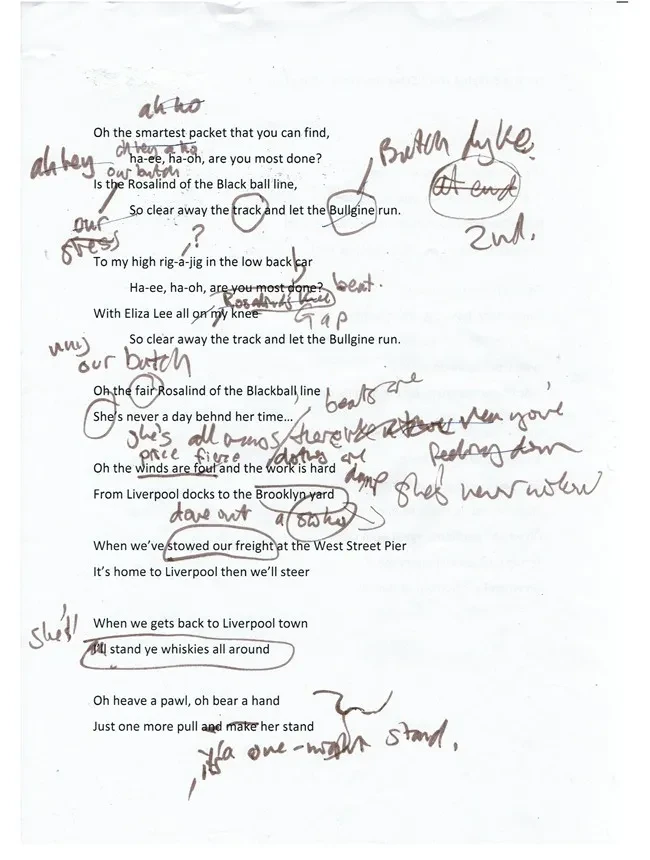 ah ho
Oh the smartest packet that you can find,
oh hey a ho
ah hey
ha-ee, ha-oh, are you most done?
our butch
Butch dyke.
at end
2nd.
Is the Rosalind of the Black ball line,
So clear away the track and let the Bullgine run.
our
stress
?
To my high rig-a-jig in the low back car
Ha-ee, ha-oh, are you most done?
beat.
Rosalind's knee
With Eliza Lee all on my knee
Gap
So clear away the track and let the Bullgine run.
our butch
Oh the fair Rosalind of the Blackball line
beats are
She's never a day behnd her time...
she's all
when you're
price fierce
clothes are
damp
Oh the winds are foul and the work is hard
she's never
From Liverpool docks to the Brooklyn yard
out
a
When we've stowed our freight at the West Street Pier
It's home to Liverpool then we'll steer
When we gets back to Liverpool town
she'll
I'll stand ye whiskies all around
Oh heave a pawl, oh bear a hand
Just one more pull and make her stand
it's a one-night stand.